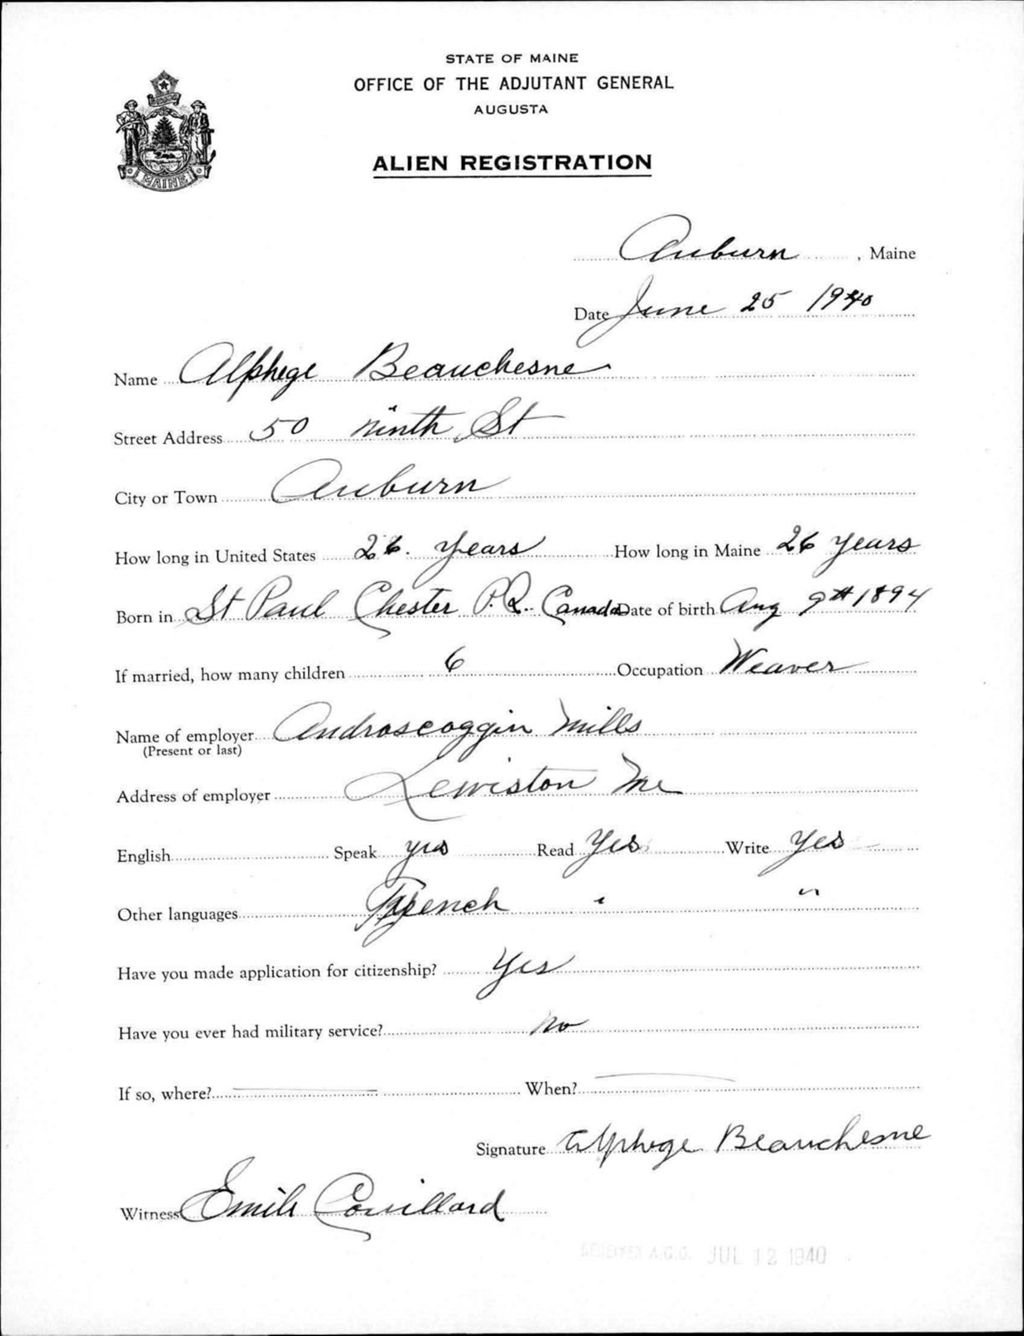 STATE OF MAINE
OFFICE OF THE ADJUTANT GENERAL
AUGUSTA
ALIEN REGISTRATION
MAINE
Auburn, Maine
Date June 25 1940
Name Alphege Beauchesne
Street Address 50 Ninth St
City or Town Auburn
How long in United States 26 years How long in Maine 26 years
Born in St Paul Chester P.Q. Canada Date of birth Aug 9th 1894
If married, how many children 6 Occupation Weaver
Name of employer Androscoggin Mills
(Present or last)
Address of employer Lewiston Me
English Speak yes Read Yes Write Yes
Other languages French " "
Have you made application for citizenship? Yes
Have you ever had military service? no
If so, where? When?
Signature Alphege Beauchesne
Witness Emile Couillard
RECEIVED A.G.O. JUL 12 1940